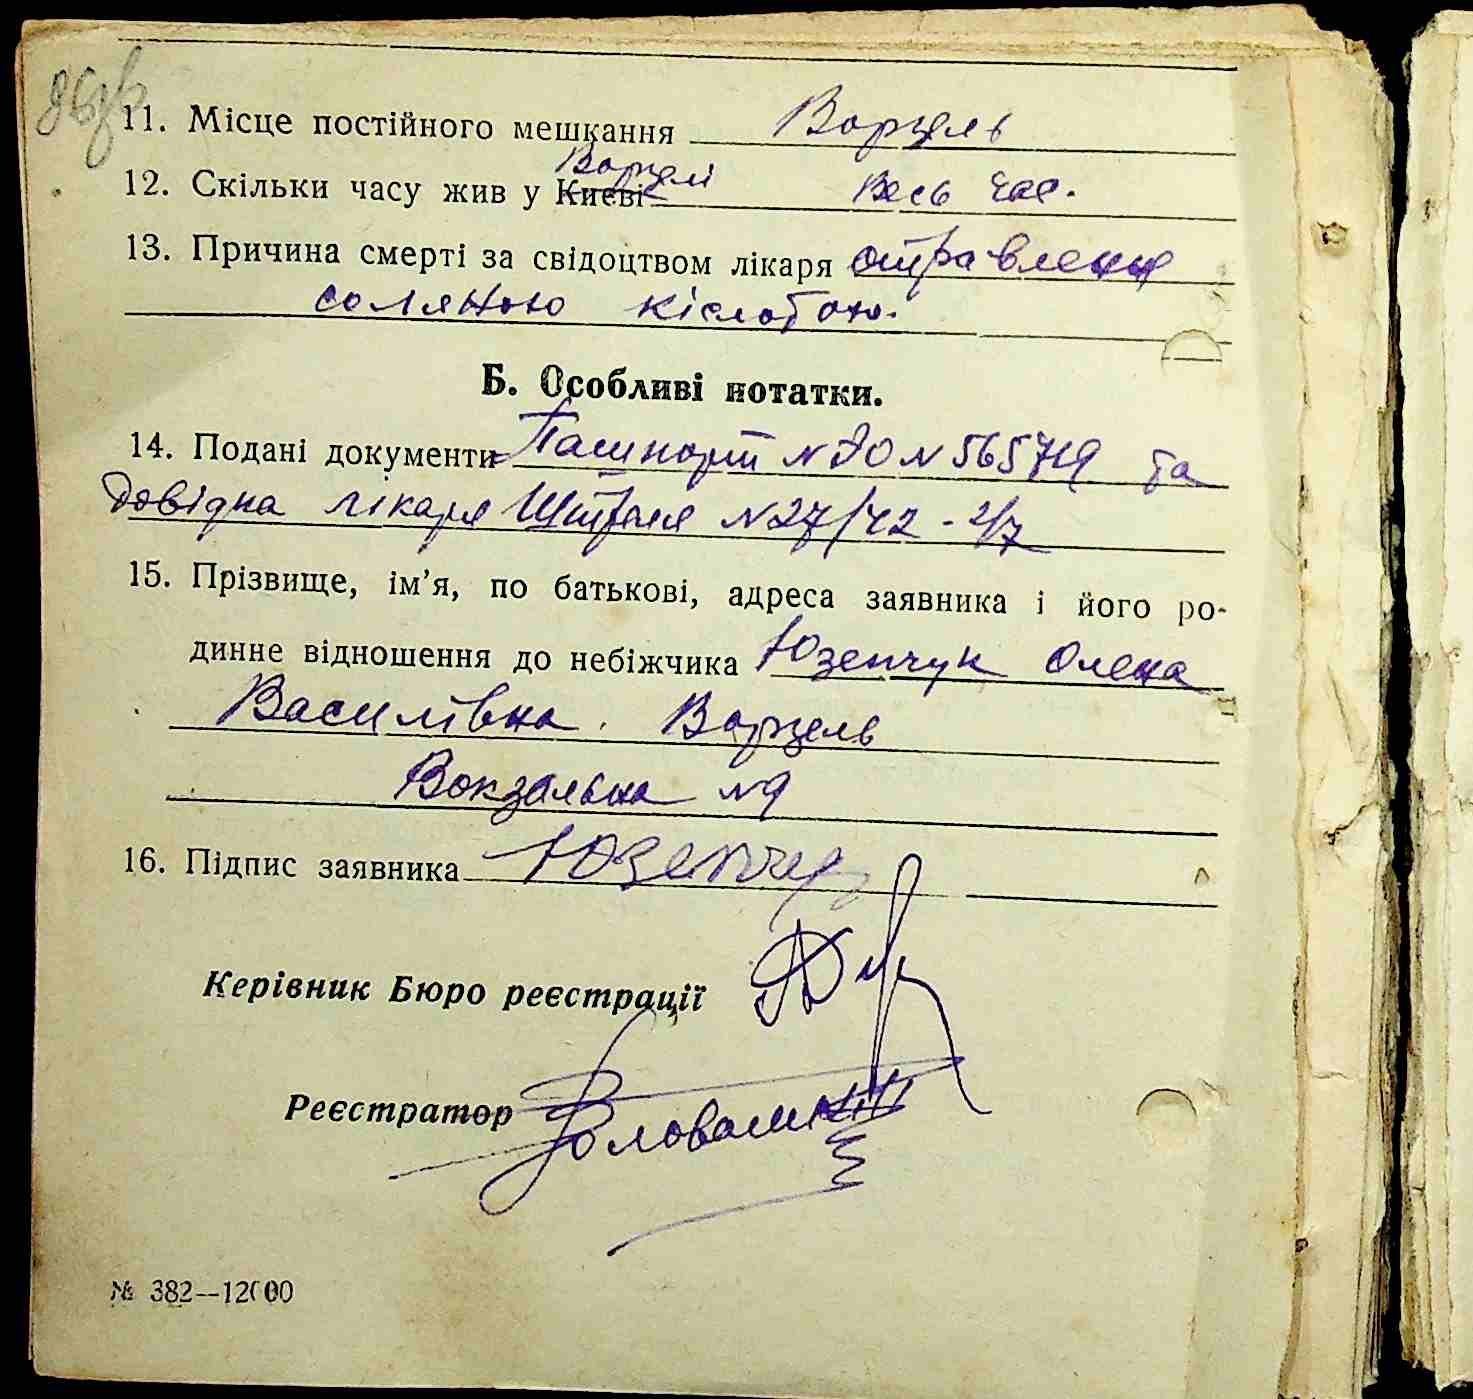 11. Місце постійного мешкання Ворзель
Ворзелі
12. Скільки часу жив у Києві Весь час.
13. Причина смерті за свідоцтвом лікаря отравленн
соляною кіслотою.
Б. Особливі нотатки.
14. Подані документи Пашпорт № ЯО № 565719 та
довідка лікаря № 27/42 - 2/7
15. Прізвище, ім’я, по батькові, адреса заявника і його ро-
динне відношення до небіжчика Юзепчук Олена
Василівна. Ворзель
Вокзальна №9
16. Підпис заявника Юзепчук
Керівник Бюро реєстрації
Реєстратор
№ 382—12000